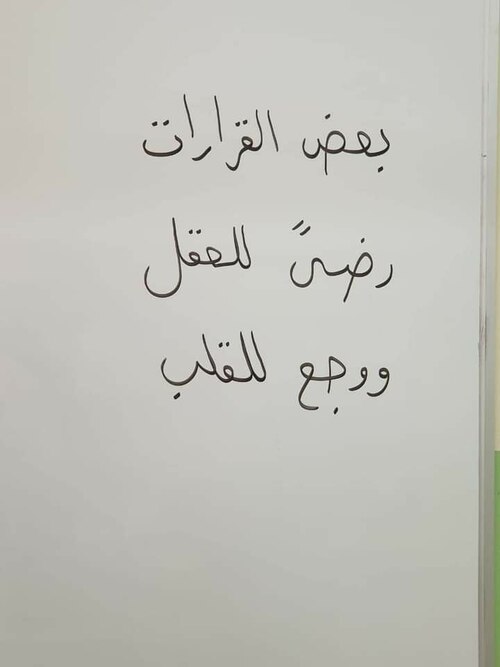 بعض القرارات
رضىً للعقل
ووجع للقلب